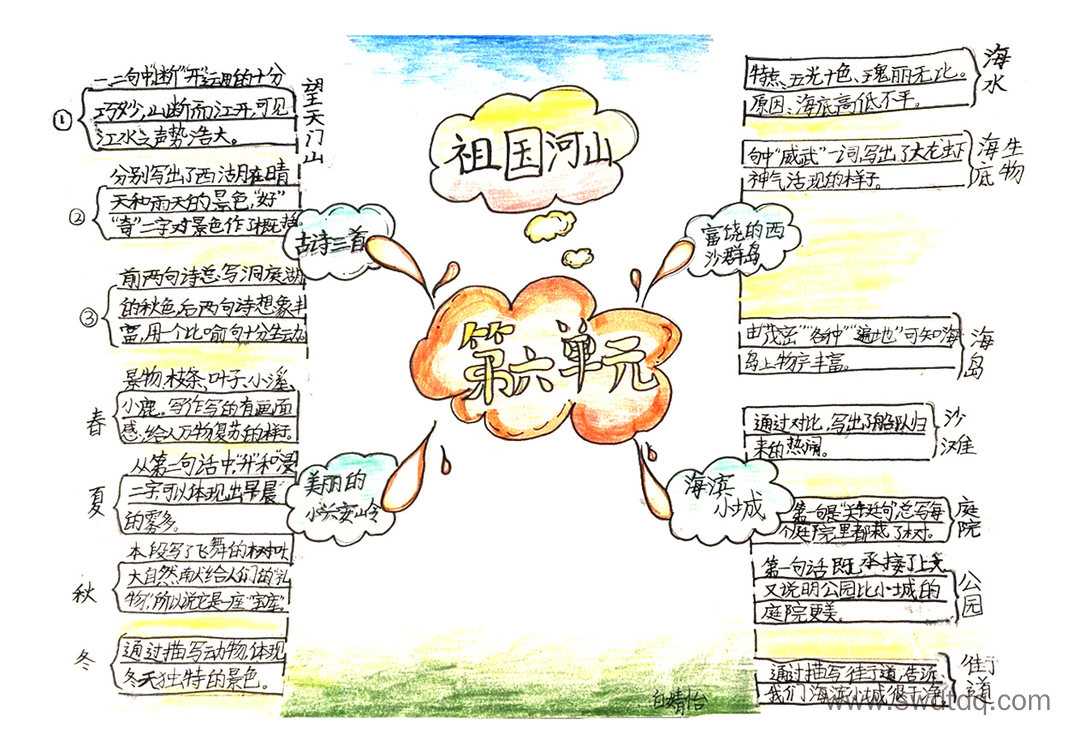 祖国河山
第六单元
古诗三首
望天门山
①
一二句中"断""开"运用的十分
巧妙,山断而江开,可见
江水之声势浩大。
②
分别写出了西湖在晴
天和雨天的景色,"好"
"奇"二字对景色作了概括。
③
前两句诗总写洞庭湖
的秋色,后两句诗想象丰
富,用一个比喻句十分生动。
美丽的
小兴安岭
春
景物:枝条、叶子、小溪、
小鹿。写作写的有画面
感,给人万物复苏的样子。
夏
从第二句话中"升"和"浸"
二字可以体现出早晨
的雾多。
秋
本段写了飞舞的树叶
大自然献给人们的礼
物",所以说它是一座"宝库"。
冬
通过描写动物,体现
冬天独特的景色。
富饶的西
沙群岛
海水
特点:五光十色、瑰丽无比。
原因:海底高低不平。
海底生物
句中"威武"一词,写出了大龙虾
神气活现的样子。
海岛
由"茂密""各种""遍地"可知海
岛上物产丰富。
海滨
小城
沙滩
通过对比,写出了船队归
来的热闹。
庭院
第一句是"关键句"总写每
个庭院里都栽了树。
公园
第一句话既承接了上文
又说明公园比小城的
庭院更美。
街道
通过描写街道,告诉
我们海滨小城很干净。
白婧怡
www.swdtdq.com